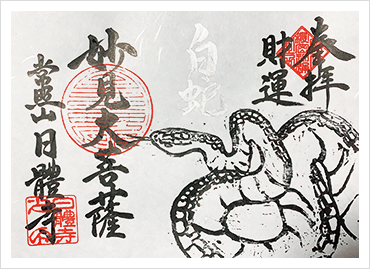 奉拝
財運
白蛇
妙見大菩薩
日體寺